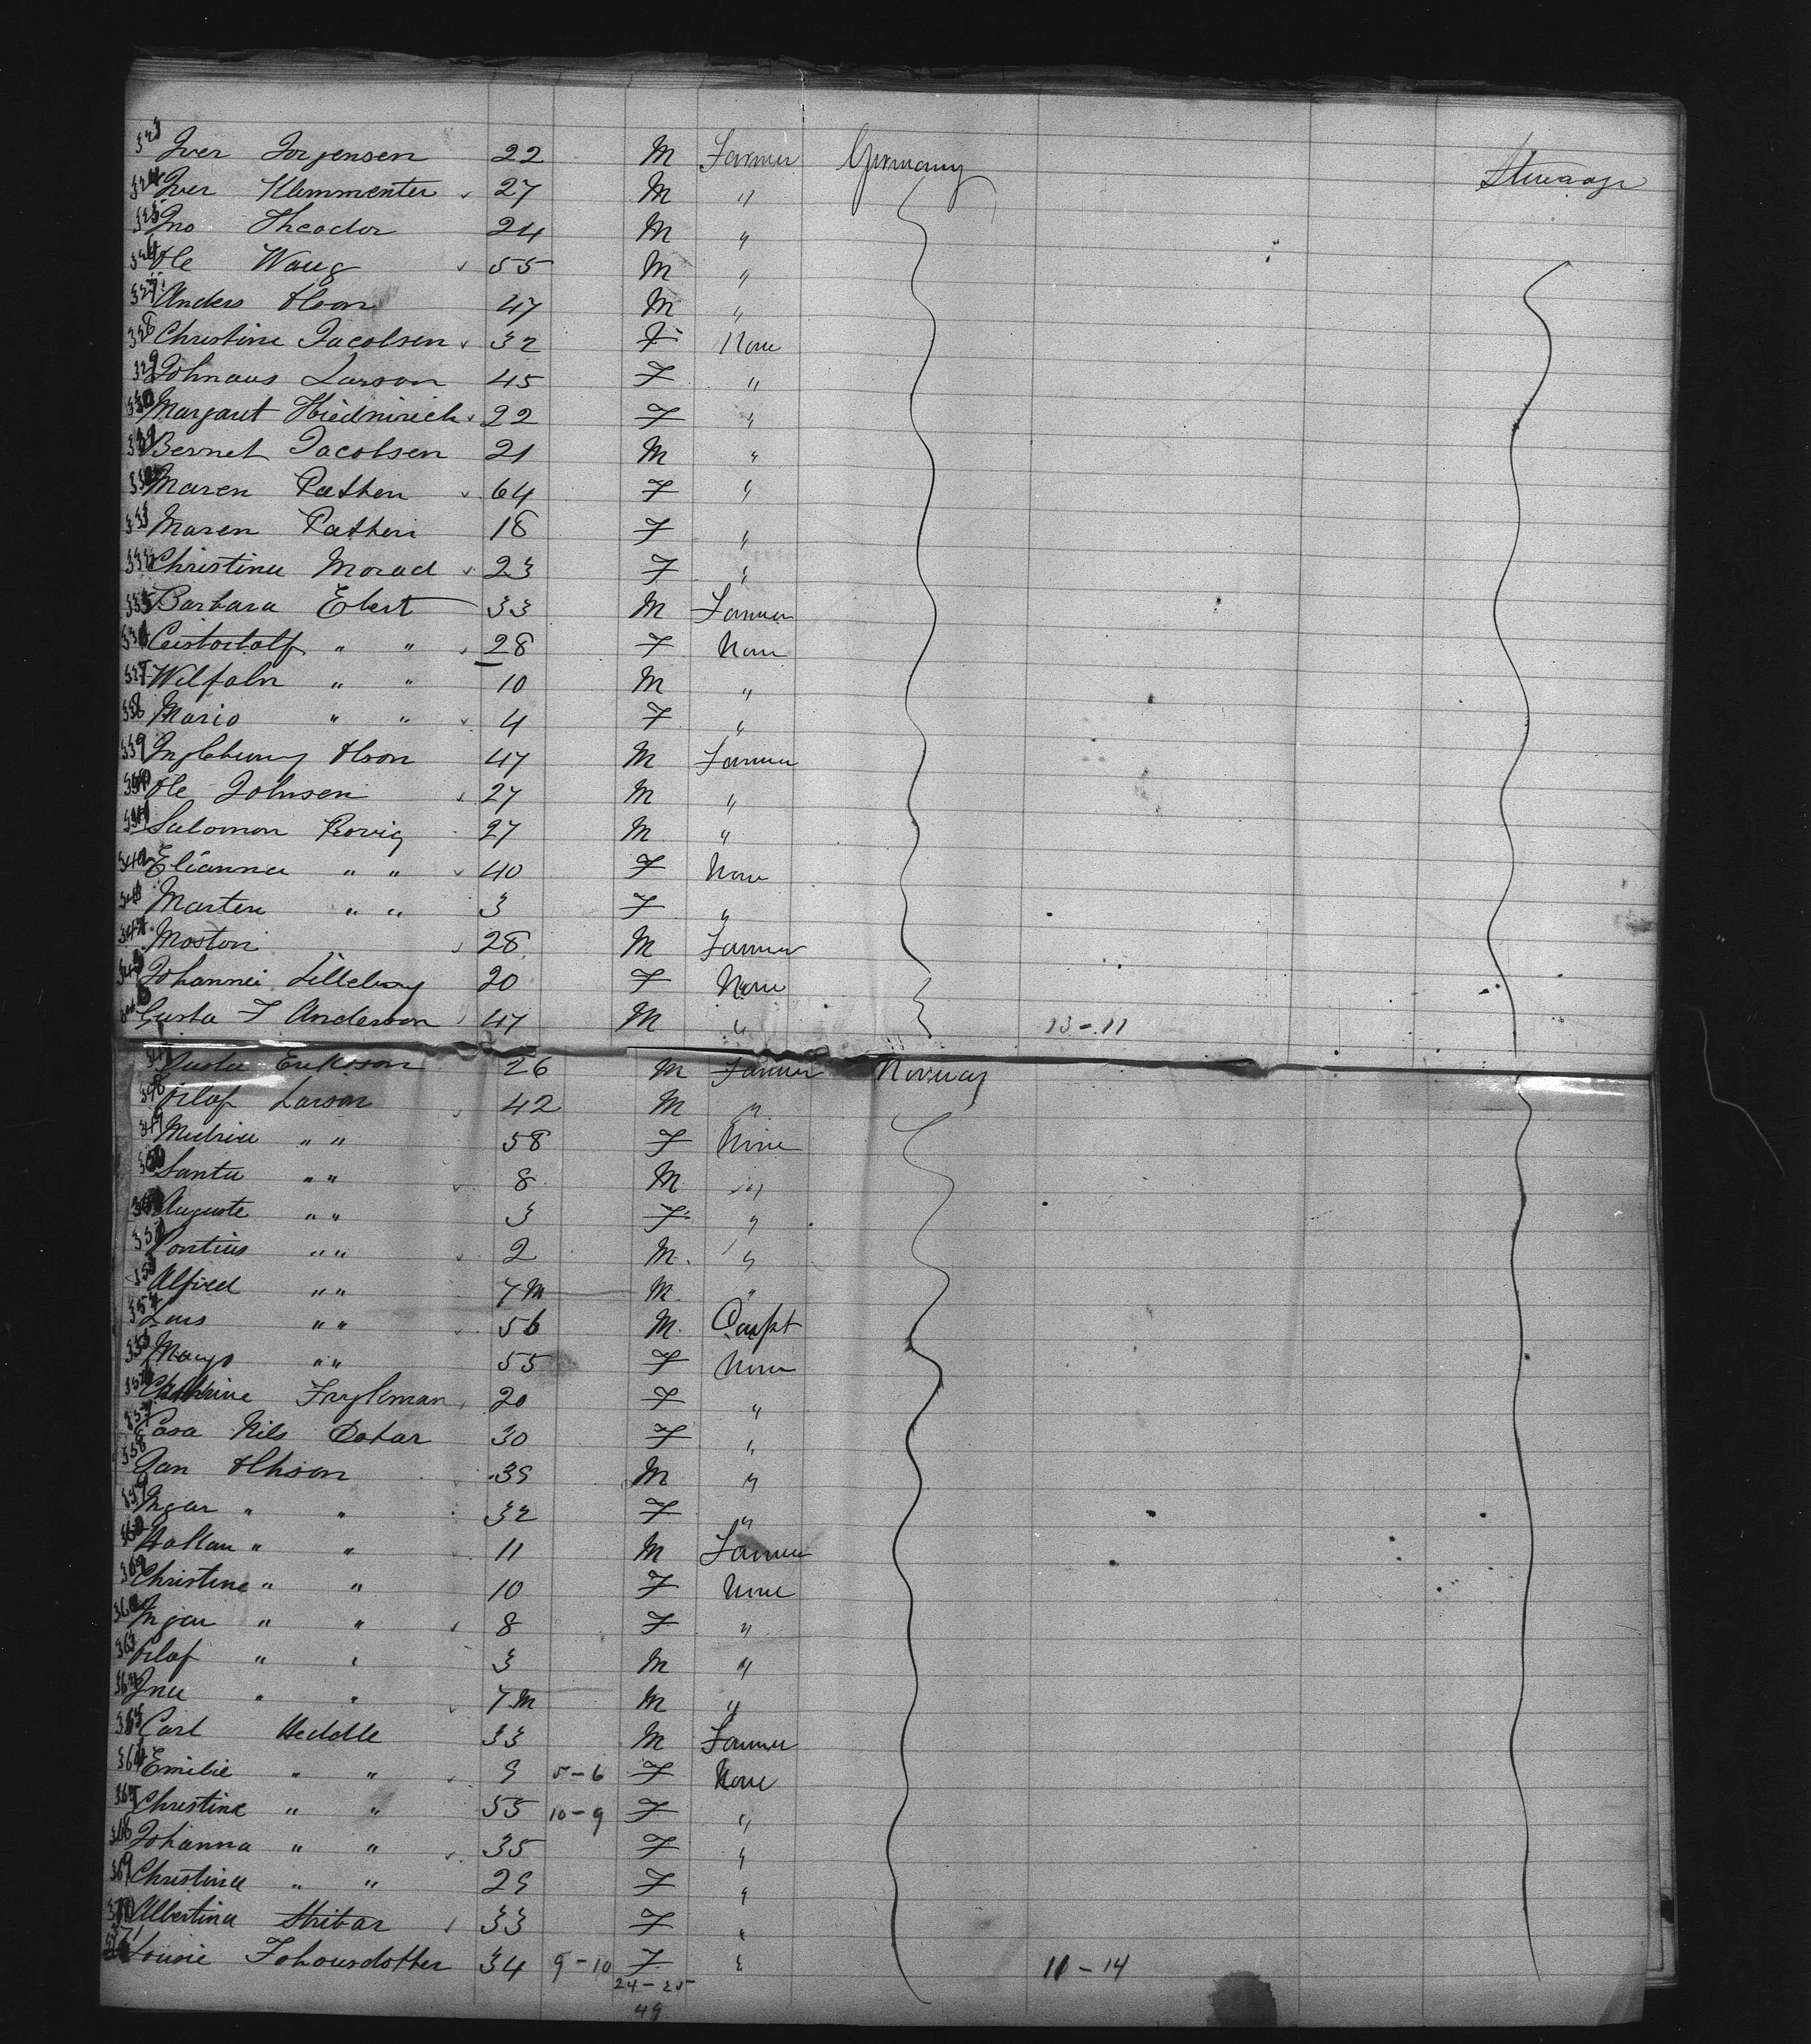 323 Iver Jorgensen 22 M Farmer Germany Steerage
324 Iver Klemmenter 27 M "
325 Jno Theodor 24 M "
326 Ole Waug 55 M "
327 Anders Olson 47 M "
328 Christine Jacobsen 32 F None
329 Johnaus Larson 45 F "
330 Margaret Hiednirich 22 F "
331 Bernet Jacobsen 21 M "
332 Maren Pathen 64 F "
333 Maren Pathen 18 F "
334 Christina Morad 23 F "
335 Barbara Ebert 33 M Farmer
336 " " 28 F None
337 Wilfaln " " 10 M "
338 Mario " " 4 F "
339 Olson 47 M Farmer
340 Ole Johnsen 27 M "
341 Salomon Rovig 27 M "
342 Elianna " " 40 F None
343 Marten " " 3 F "
344 Moston 28 M Farmer
345 Johannei Lilleberg 20 F None
346 Gusta F Anderson 47 M " 13 - 11
347 Gusta Erikson 26 M Farmer Norway
348 Olof Larson 42 M "
349 " " 58 F None
350 Santa " " 8 M "
351 Auguste " " 3 F "
352 Pontius " " 2 M "
353 Alfred " " 7 M M "
354 Lars " " 56 M Carpt
355 " " 55 F None
356 Cathrine Frykman 20 F "
357 Nils Dotar 30 F "
358 Jan Olhson 39 M "
359 Ingar " " 32 F "
360 " " 11 M Farmer
361 Christine " " 10 F None
362 Ingar " " 8 F "
363 Olof " " 3 M "
364 " " 7 M M "
365 Carl Heddle 33 M Farmer
366 Emilie " " 9 5-6 F None
367 Christine " " 55 10-9 F "
368 Johanna " " 35 F "
369 Christina " " 29 F "
370 Albertina Stribar 33 F "
371 Lousie Johousdotter 34 9-10 F " 11 - 14
24-25
49